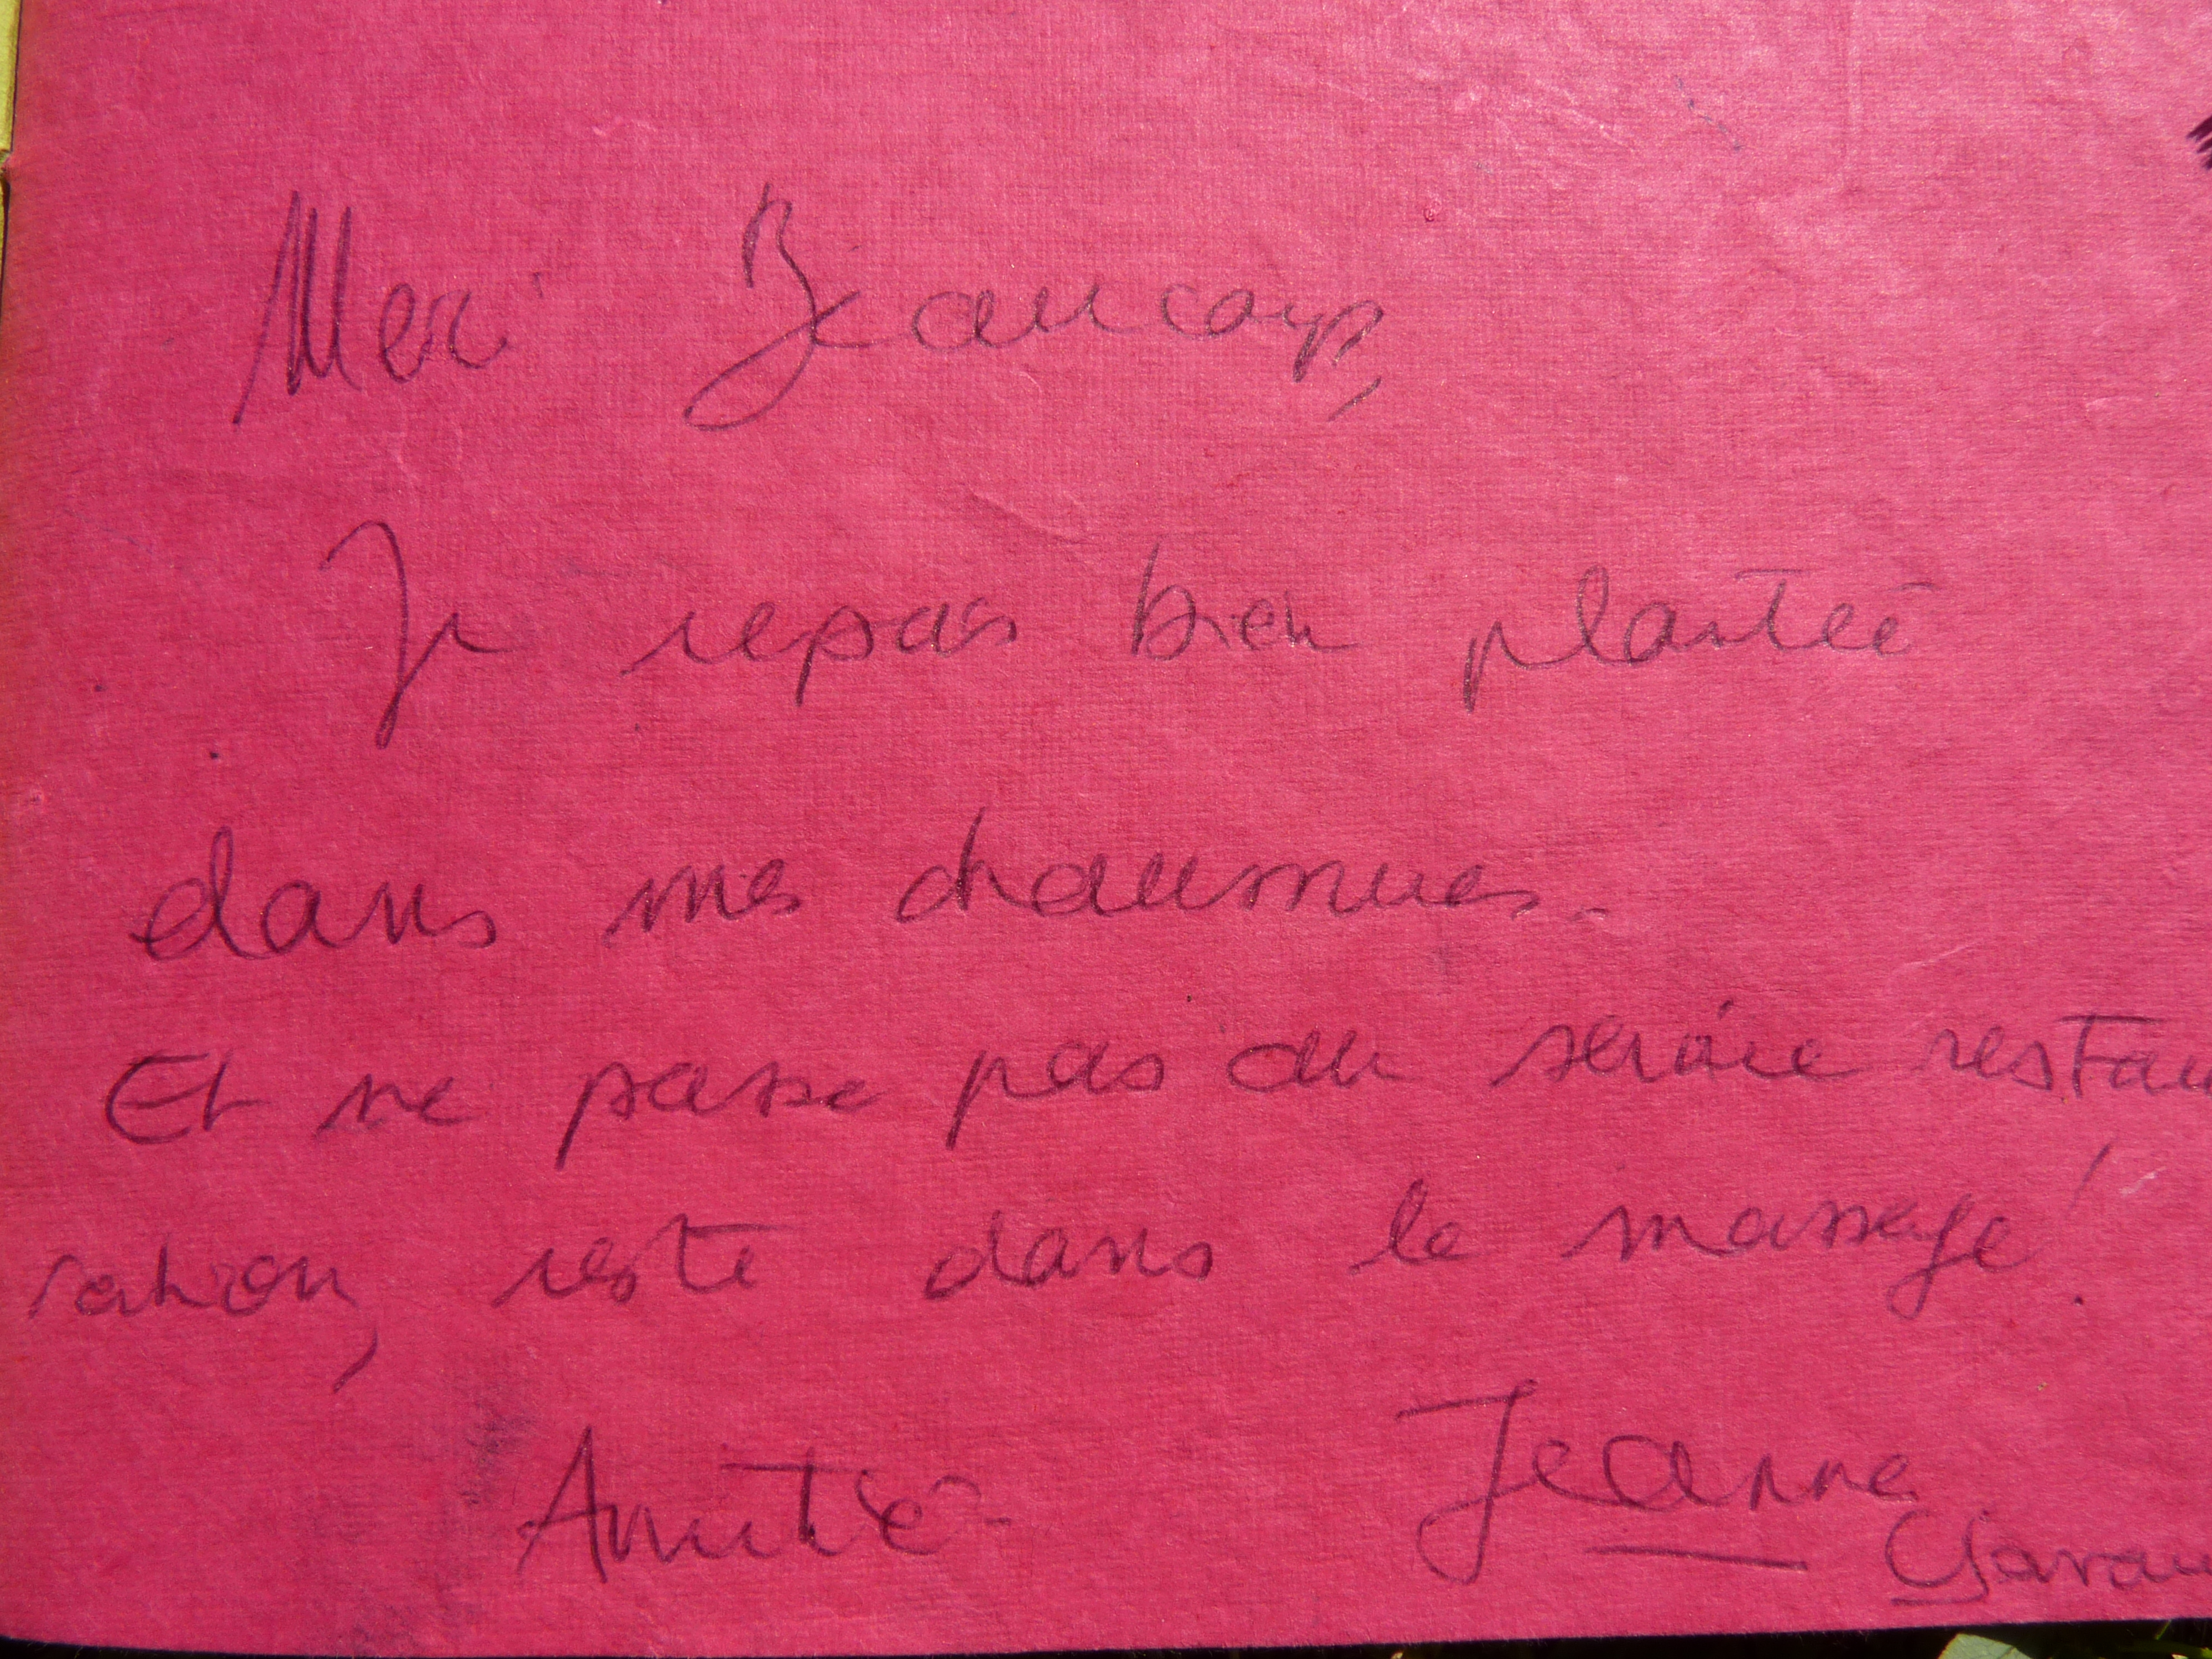 Merci Beaucoup,
Je repars bien plantée
dans mes chaussures.
Et ne passe pas au service restau
ration, reste dans le massage !
Amitié - Jeanne